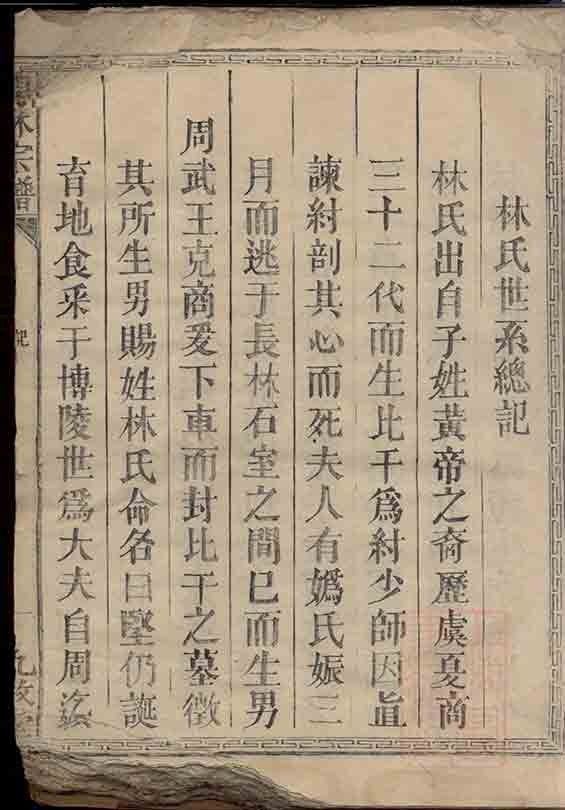 林氏世系總記
林氏出自子姓黃帝之裔歷虞夏商
三十二代而生比干爲紂少師因直
諫紂剖其心而死夫人有嬀氏娠三
月而逃于長林石室之間已而生男
周武王克商爰下車而封比干之墓徵
其所生男賜姓林氏命名曰堅仍誕
育地食采于博陵世爲大夫自周迄
林宗譜
記